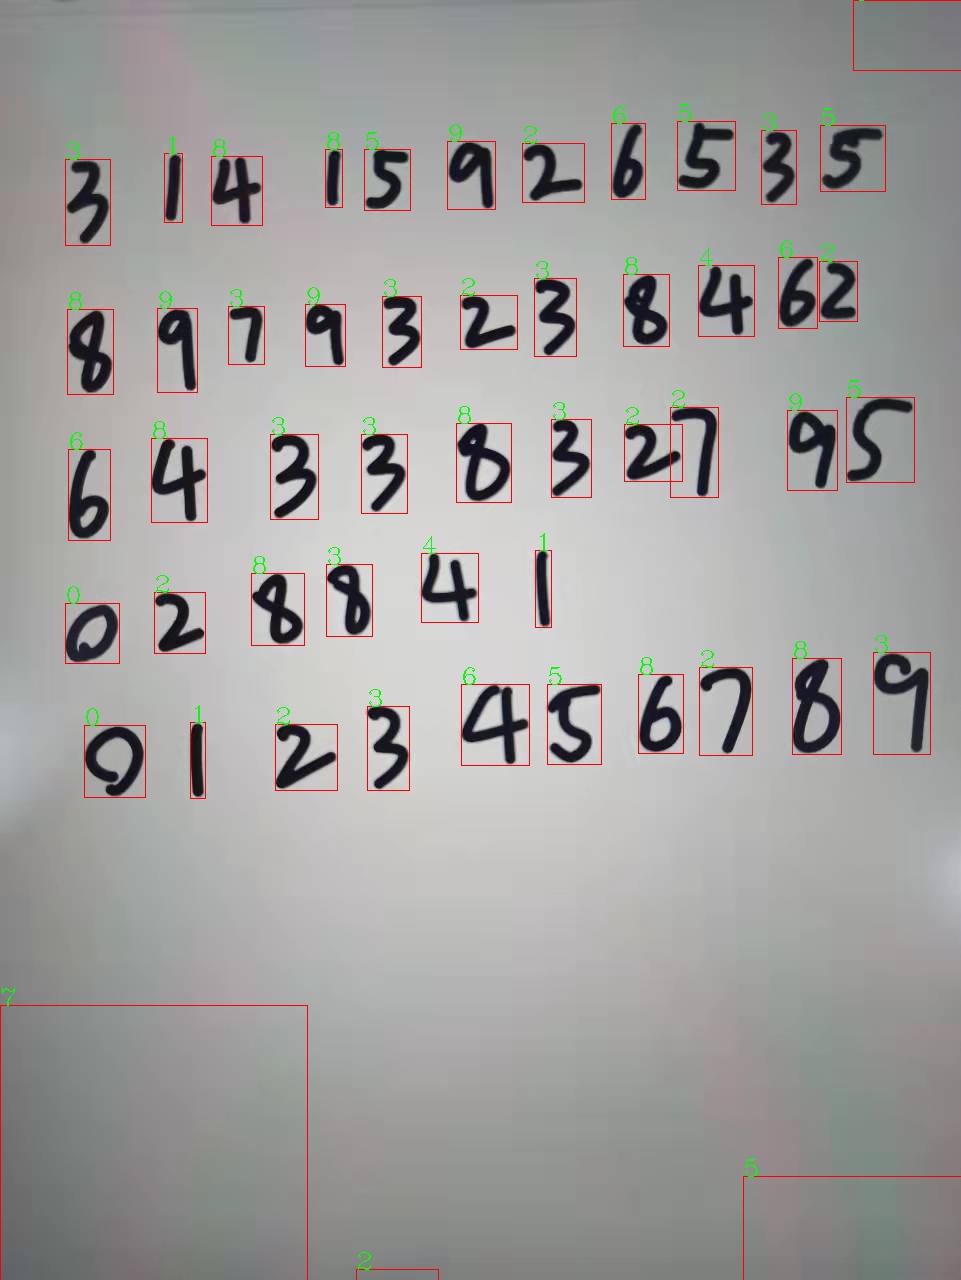 3 1 8 8 5 9 2 6 5 3 5
3 1 4 1 5 9 2 6 5 3 5
8 9 3 9 3 2 3 8 4 6 2
8 9 7 9 3 2 3 8 4 6 2
6 8 3 3 8 3 2 2 9 5
6 4 3 3 8 3 2 7 9 5
0 2 8 3 4 1
0 2 8 8 4 1
0 1 2 3 6 5 8 2 8 3
0 1 2 3 4 5 6 7 8 9
7
5
2